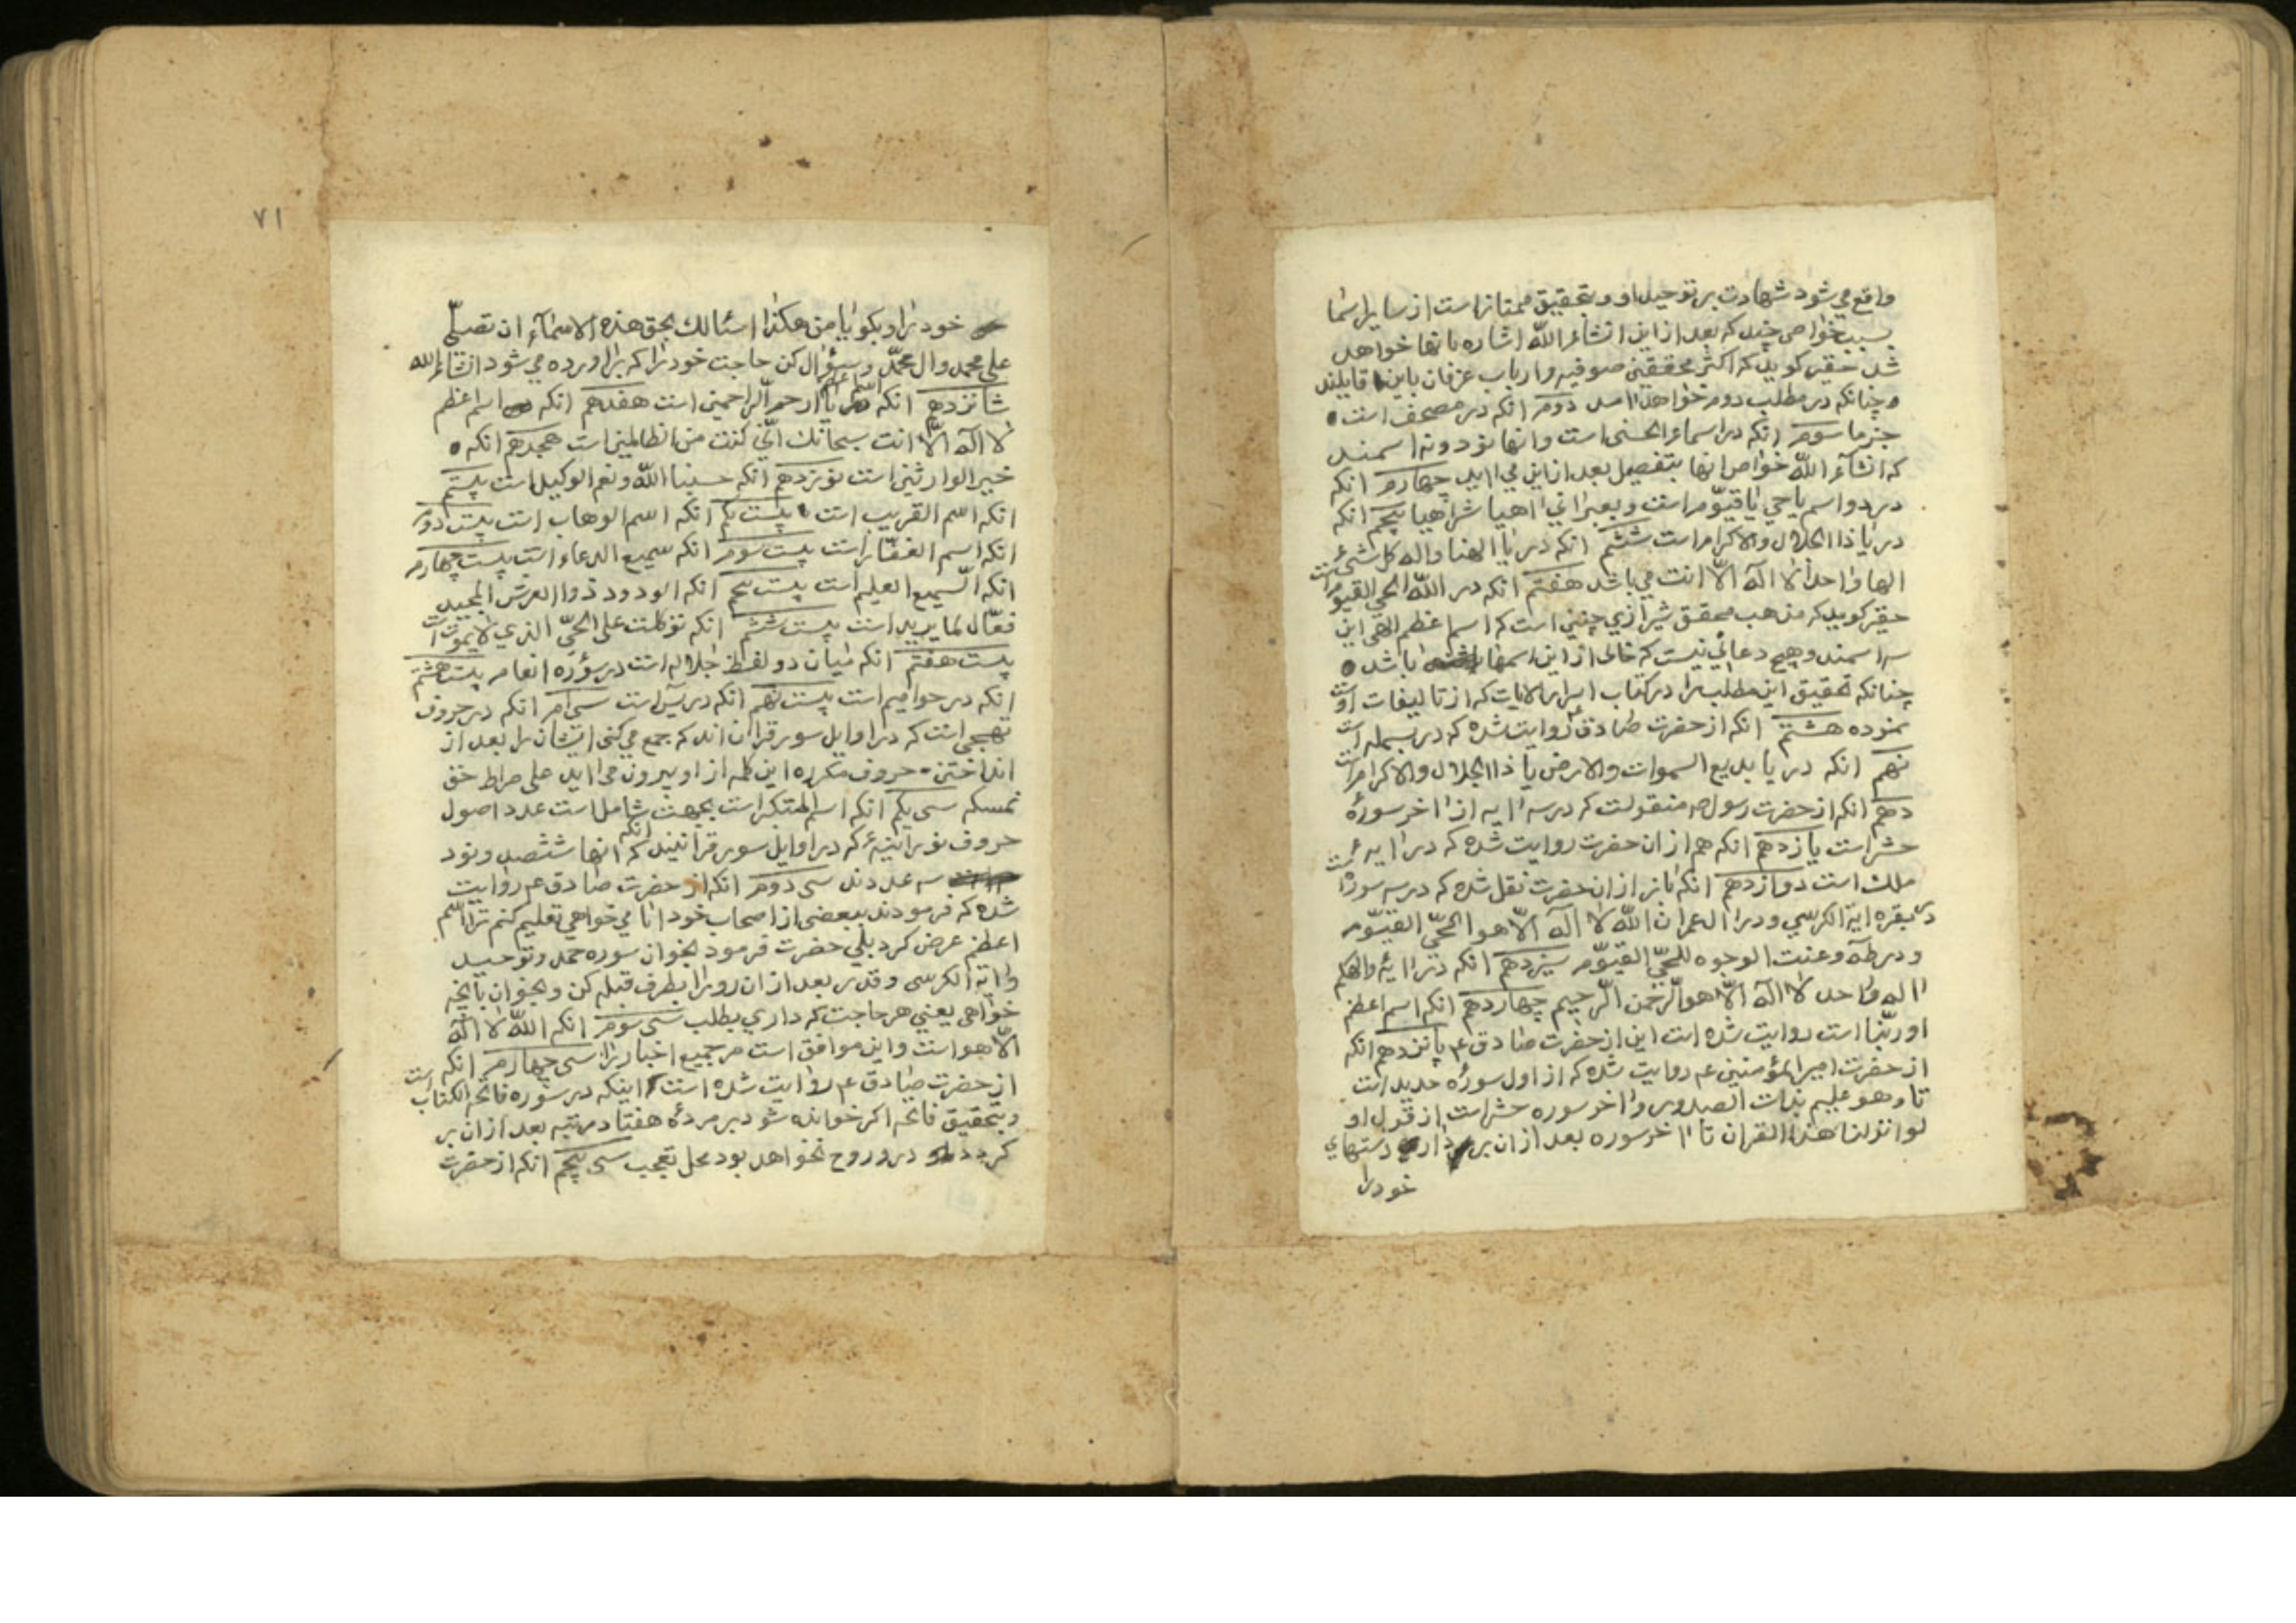 واقع می شود شهادت بر توحید او و بتحقیق ممتاز است از سایر اسما
بسبب خواص چند که بعد از این انشاء الله اشاره بانها خواهد
شد حقیر کوید که اکثر محققین صوفیه و ارباب عرفان باین قایلند
چنانکه در مطلب دوم خواهد امد دوم انکه در مصحف است
جزما سوم انکه در اسماء الحسنی است و انها نود و نه اسمند
که انشاء الله خواص انها بتفصیل بعد از این می اید چهارم انکه
در دو اسم یا حی یا قیوم است و بعبرانی اهیا شراهیا پنجم انکه
در یا ذا الجلال والاکرام است ششم انکه در یا الهنا واله کل شیء
الها واحدا لا اله الا انت می باشد هفتم انکه در الله الحی القیوم است
حقیر کوید که مذهب محقق شیرازی چنین است که اسم اعظم الهی این
سه اسمند و هیچ دعائی نیست که خالی از این اسمها باشد
چنانکه تحقیق این مطلب را در کتاب اسرار الایات که از تالیفات اوست
نموده هشتم انکه از حضرت صادق ع روایت شده که در بسمله است
نهم انکه در یا بدیع السموات والارض یا ذا الجلال والاکرام است
دهم انکه از حضرت رسول ص منقولست که در سه ایه از اخر سورهٔ
حشر است یازدهم انکه هم از ان حضرت روایت شده که در ایهٔ
ملک است دوازدهم انکه باز از ان حضرت نقل شده که در سه سوره است
در بقره ایة الکرسی و در ال عمران الله لا اله الا هو الحی القیوم
و در طه وعنت الوجوه للحی القیوم سیزدهم انکه در ایهٔ والهکم
اله واحد لا اله الا هو الرحمن الرحیم چهاردهم انکه اسم اعظم
او ربنا است روایت شده است این از حضرت صادق ع پانزدهم انکه
از حضرت امیر المؤمنین ع روایت شده که از اول سورهٔ حدید است
تا وهو علیم بذات الصدور و اخر سوره حشر است از قول او
لو انزلنا هذا القران تا اخر سوره بعد از ان بردار دستهای
خود را
۷۱
خود را و بکو یا من هکذا اسئالک بحق هذه الاسماء ان تصلی
علی محمد وال محمد و سؤال کن حاجت خود را که براورده می شود انشاء الله
شانزدهم انکه یا ارحم الراحمین است هفدهم انکه اسم اعظم
لا اله الا انت سبحانک انی کنت من الظالمین است هجدهم انکه
خیر الوارثین است نوزدهم انکه حسبنا الله ونعم الوکیل است بیستم
انکه اسم القریب است بیست یکم انکه اسم الوهاب است بیست دوم
انکه اسم الغفار است بیست سوم انکه سمیع الدعاء است بیست چهارم
انکه السمیع العلیم است بیست پنجم انکه الودود ذوا العرش المجید
فعال لما یرید است بیست ششم انکه توکلت علی الحی الذی لا یموت است
بیست هفتم انکه میان دو لفظ جلاله است در سورهٔ انعام بیست هشتم
انکه در حوامیم است بیست نهم انکه در یس است سی ام انکه در حروف
تهجی است که در اوایل سور قران اند که جمع می کنی ایشان را بعد از
انداختن حروف مکرره این کلمه از او بیرون می اید علی صراط حق
نمسکه سی یکم انکه اسم المتکبر است بجهت انکه شامل است عدد اصول
حروف نورانیهٔ که در اوایل سور قرانیند که انها ششصد و نود
سه عددند سی دوم انکه از حضرت صادق ع روایت
شده که فرمودند ببعضی از اصحاب خود ایا می خواهی تعلیم کنم ترا اسم
اعظم عرض کرد بلی حضرت فرمود بخوان سوره حمد و توحید
و ایة الکرسی و قدر بعد از ان رو را بطرف قبله کن و بخوان بانچه
خواهی یعنی هر حاجت که داری بطلب سی سوم انکه الله لا اله
الا هو است و این موافق است مر جمیع اخبار را سی چهارم انکه
از حضرت صادق ع روایت شده است اینکه در سوره فاتحة الکتاب است
و بتحقیق فاتحه اکر خوانده شود بر مردهٔ هفتاد مرتبه بعد از ان بر
کردد در و روح نخواهد بود محل تعجب سی پنجم انکه از حضرت